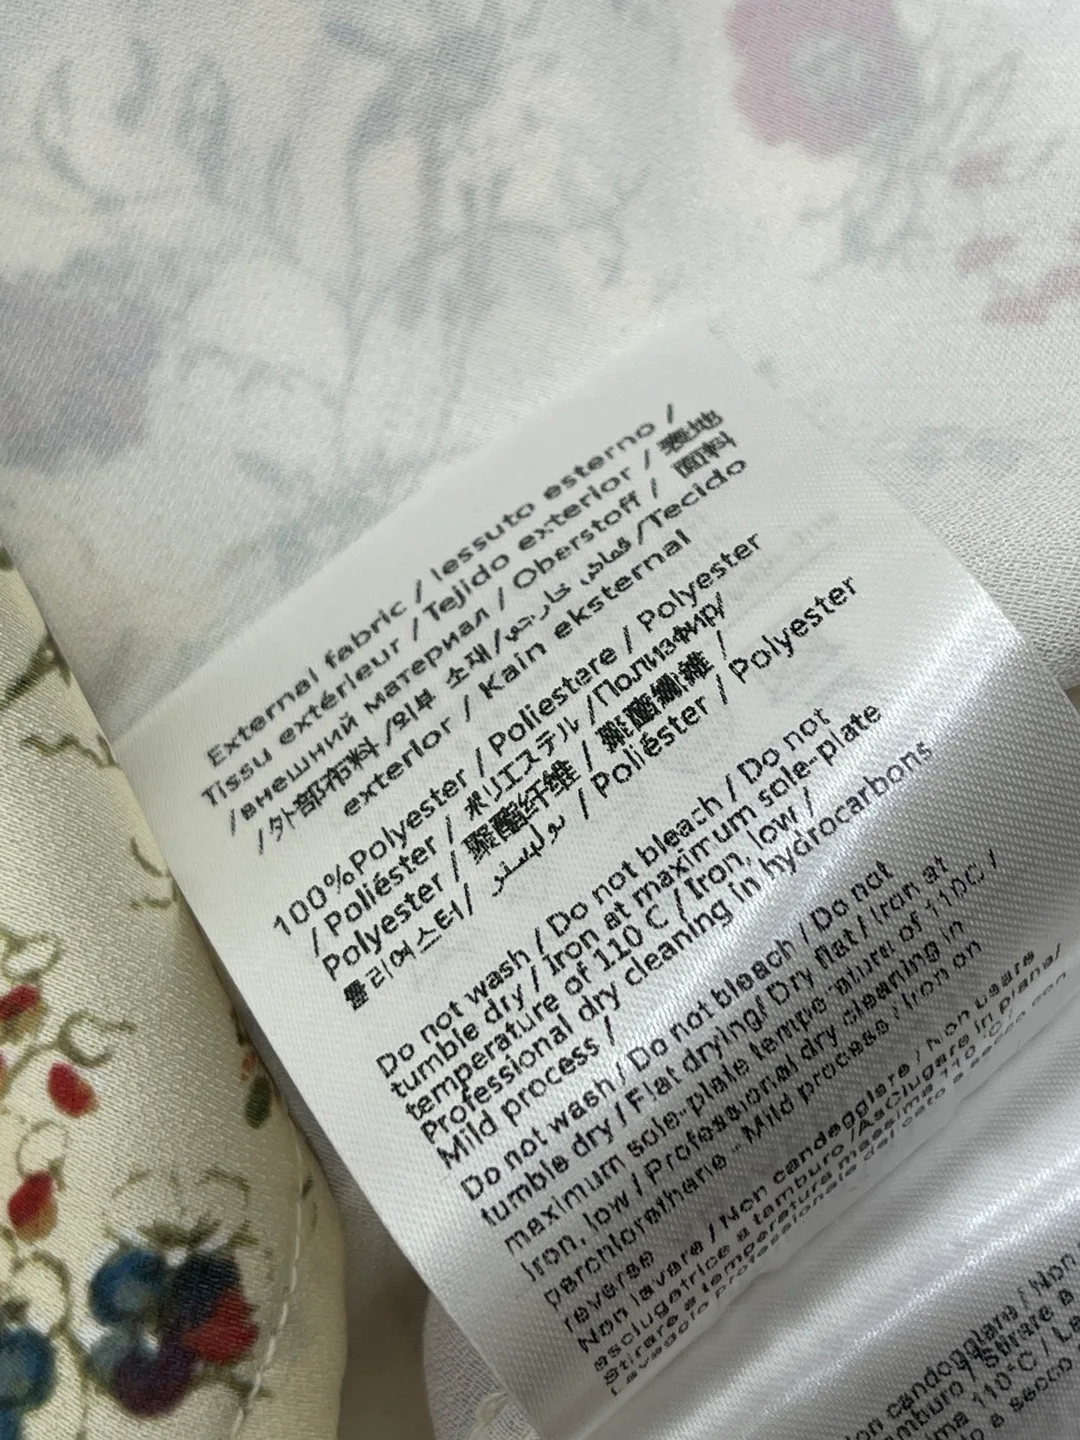 External fabric / Iessuto esterno /
Tissu extérieur / Tejido exterior / 表地
/внешний материал / Oberstoff / 面料
/外部布料 /외부 소재/قماش خارجي /Tecido
exterior / Kain eksternal
100%Polyester / Poliestere / Polyester
/ Poliéster / ポリエステル /Полиэфир/
Polyester / 聚酯纤维 / 聚酯纖維 /
폴리에스터/ بوليستر / Poliéster / Polyester
Do not wash / Do not bleach / Do not
tumble dry / Iron at maximum sole-plate
temperature of 110 C / Iron, low /
Professional dry cleaning in hydrocarbons
Mild process /
Do not wash / Do not bleach / Do not
tumble dry / Flat drying/ Dry flat / Iron at
maximum sole-plate temperature of 110C /
Iron, low / Professional dry cleaning in
perchlorethene Mild process / Iron on
reverse
Non lavare / Non candeggiare / Non usare
asciugatrice a tamburo /Asciugare in piana/
Stirare a temperatura massima 110 °C /
Lavaggio professionale
Non
candeggiare / Non
tamburo / Stirare a
110°C /
a secco